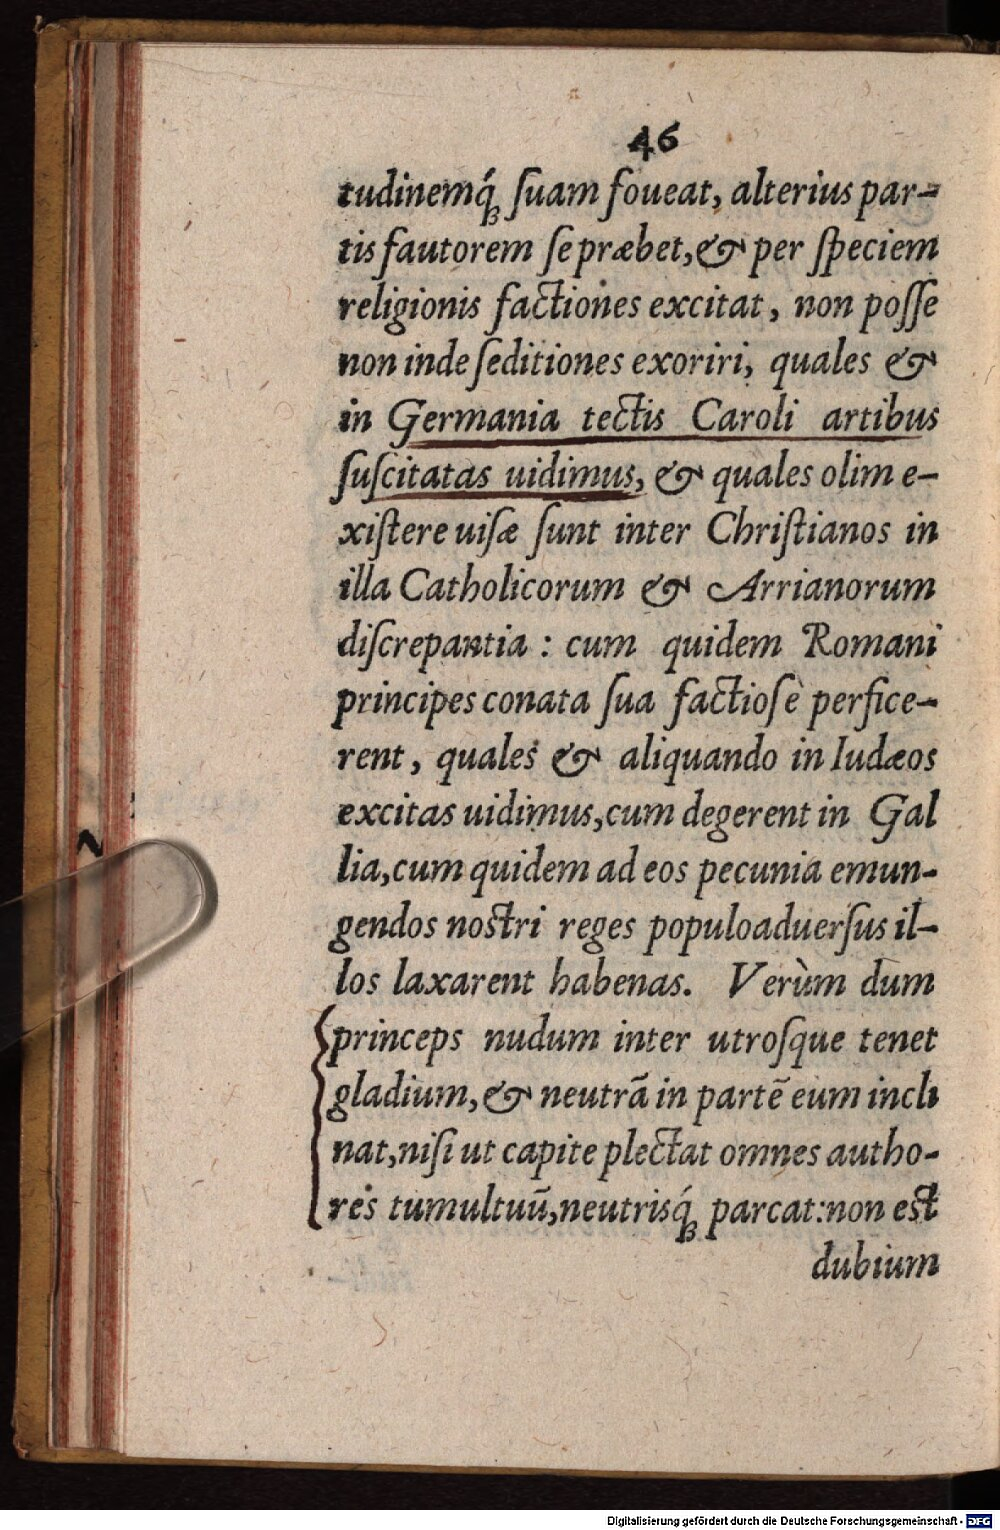 46
tudinemq́; ſuam foueat, alterius par-
tis fautorem ſe præbet, & per ſpeciem
religionis factiones excitat, non poſſe
non inde ſeditiones exoriri, quales &
in Germania tectis Caroli artibus
ſuſcitatas uidimus, & quales olim e-
xiſtere uiſæ ſunt inter Chriſtianos in
illa Catholicorum & Arrianorum
diſcrepantia : cum quidem Romani
principes conata ſua factioſè perfice-
rent, quales & aliquando in Iudæos
excitas uidimus, cum degerent in Gal
lia, cum quidem ad eos pecunia emun-
gendos noſtri reges populo aduerſus il-
los laxarent habenas. Verùm dum
princeps nudum inter utroſque tenet
gladium, & neutrā in partē eum incli
nat, niſi ut capite plectat omnes autho-
res tumultuū, neutrisq́; parcat: non eſt
dubium
Digitalisierung gefördert durch die Deutsche Forschungsgemeinschaft - DFG